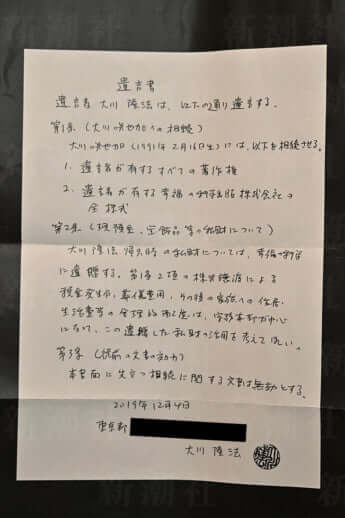 遺言書
遺言者 大川 隆法は、以下の通り遺言する。
第1条 (大川咲也加への相続)
大川咲也加 (1991年2月16日生)には、以下を相続させる。
1. 遺言者が有するすべての著作権
2. 遺言者が有する幸福の科学出版株式会社の
全株式
第2条 (現預金、宝飾品等の私財について)
大川隆法帰天時の私財については、幸福の科学
に遺贈する。第1条2項の株式譲渡による
税金支払や、葬儀費用、その時の家族への住居、
生活費等の合理的
この遺贈した私財の活用を考えてほしい。
第3条 (以前の文書の効力)
本書面に先立つ相続に関する文書は無効とする。
2019年12月4日
東京都
大川 隆法
新潮社